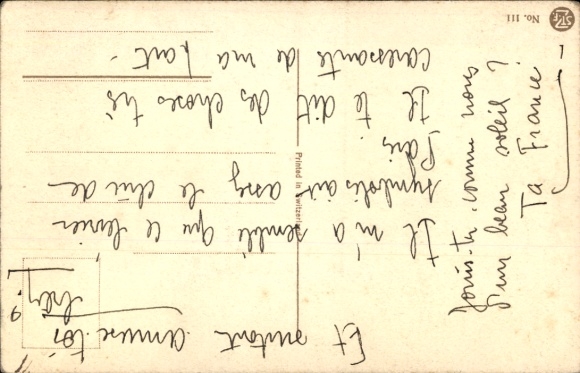 Il m'a semblé que ce lévrier
symbolisait assez le chic de
Paris.
Il te dit des choses très
caressantes de ma part -
Et surtout amuse-toi
Jouis-tu, comme nous
d'un beau soleil ?
Ta France.
Printed in Switzerland
No. 111